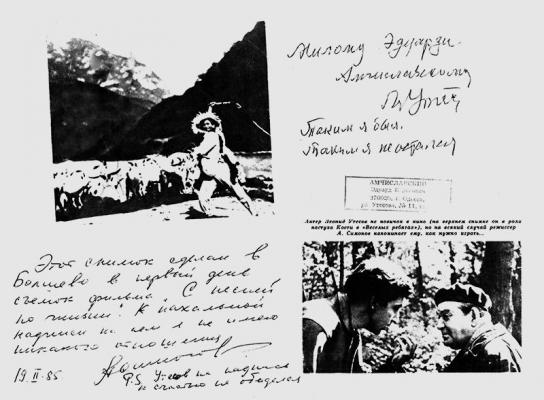 Милому Эдуарду
Амчиславскому
Таким я был.
Таким я не остался
АМЧИСЛАВСКИЙ
Актер Леонид Утесов не новичок в кино (на верхнем снимке он в роли
пастуха Кости в «Веселых ребятах»), но на всякий случай режиссер
А. Симонов напоминает ему, как нужно играть...
Этот снимок сделан в
Болшево в первый день
съемок фильма „С песней
по жизни". К нахальной
надписи на нем я не имею
никакого отношения
19.II.85
P.S. Утесов на надпись
к счастью не обиделся